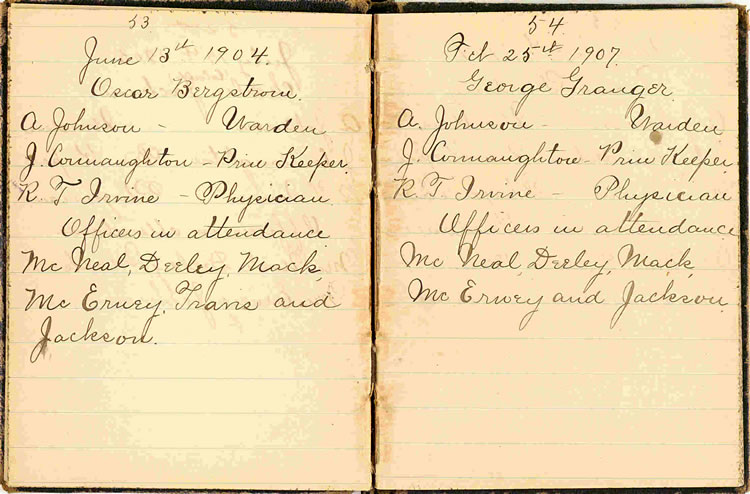 53
June 13th 1904.
Oscar Bergstrom.
A. Johnson - Warden
J. Connaughton - Prin Keeper.
R. T. Irvine - Physician
Officers in attendance
Mc Neal, Deeley, Mack,
Mc Erney, Travis and
Jackson.
54
Feb 25th 1907.
George Granger
A. Johnson - Warden
J. Connaughton - Prin Keeper.
R. T. Irvine - Physician
Officers in attendance
Mc Neal, Deeley, Mack,
Mc Erney and Jackson.